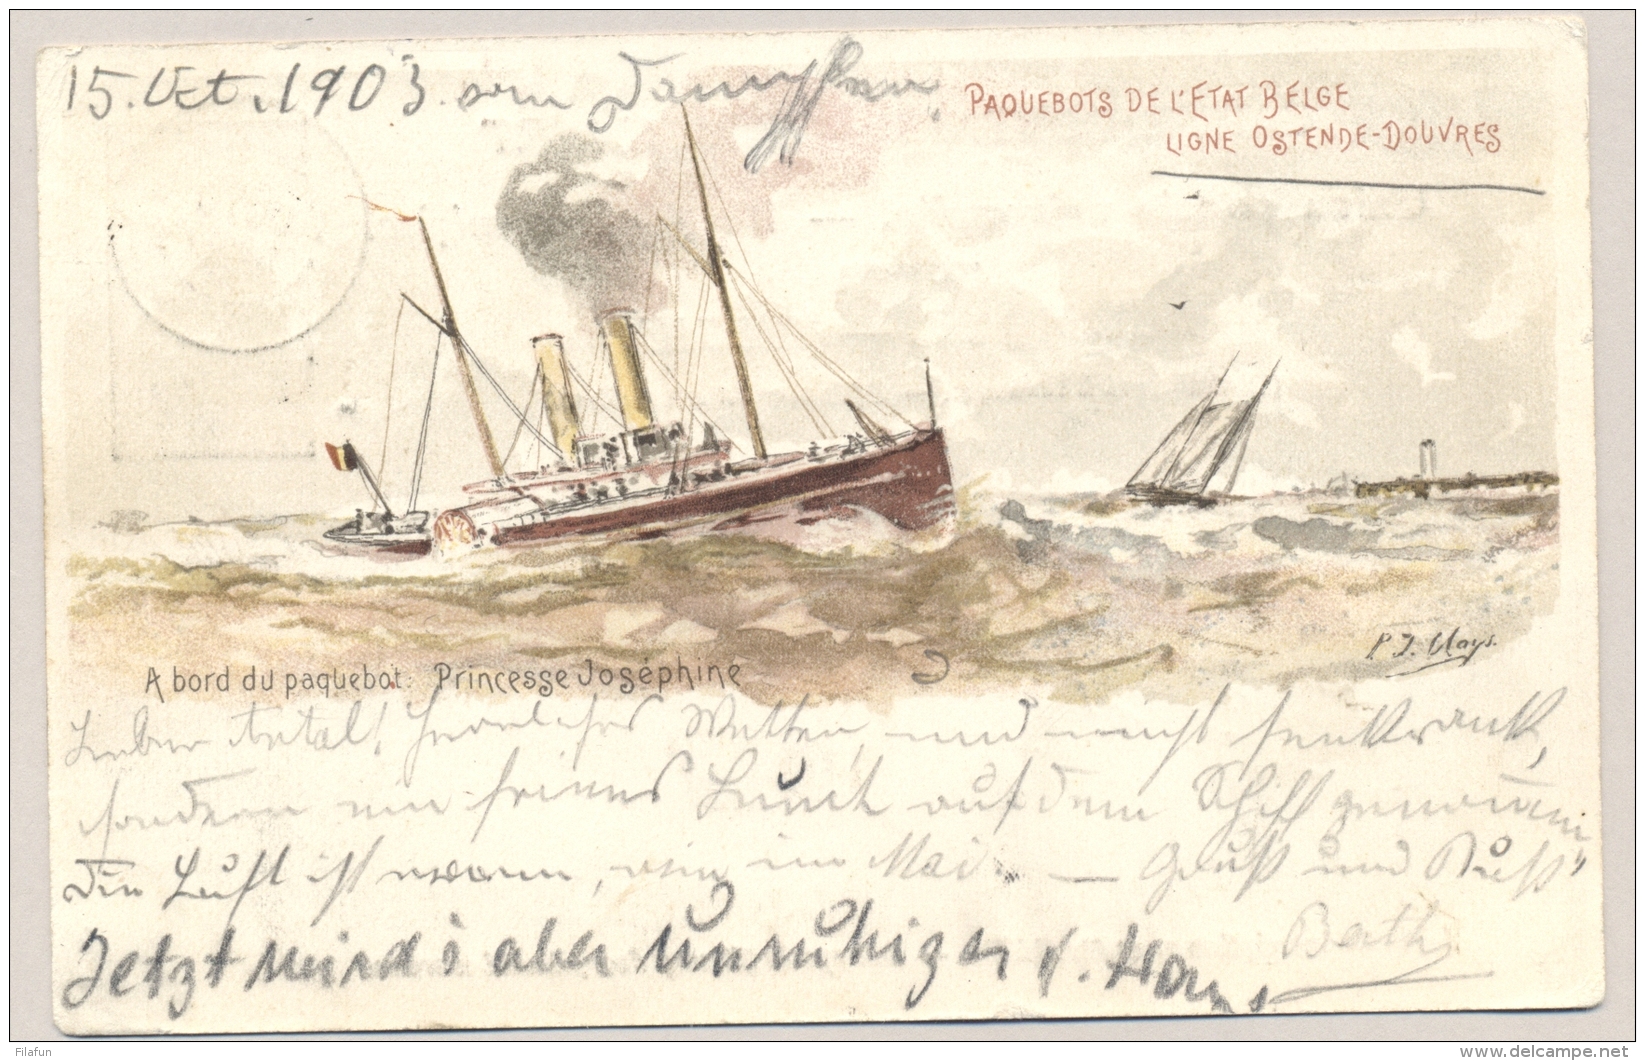 15. Oct. 1903. vom Dampfer
PAQUEBOTS DE L'ETAT BELGE
LIGNE OSTENDE-DOUVRES
P. J. Clays.
A bord du paquebot: Princesse Joséphine
Lieber Antal! Herrliches Wetter, und nicht seekrank,
sondern ein feines Lunch auf dem Schiff genommen
Die Luft ist warm, wie im Mai. — Gruß und Kuß"
Jetzt wird's aber unruhiger d. Hans
Filafun
delcampe.net